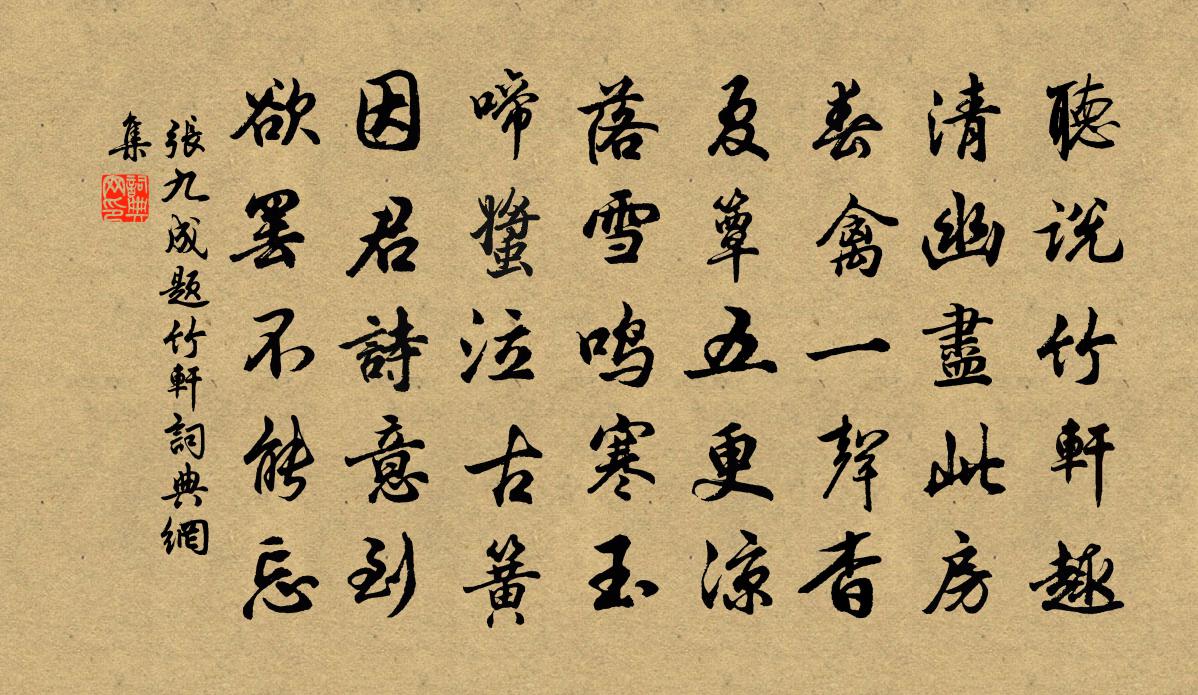 聽說竹軒趣
清幽盡此房
春禽一聲杳
夏簟五更涼
落雪鳴寒玉
啼螿泣古簧
因君詩意到
欲罷不能忘
張九成題竹軒詞典網
集
詞典
网印